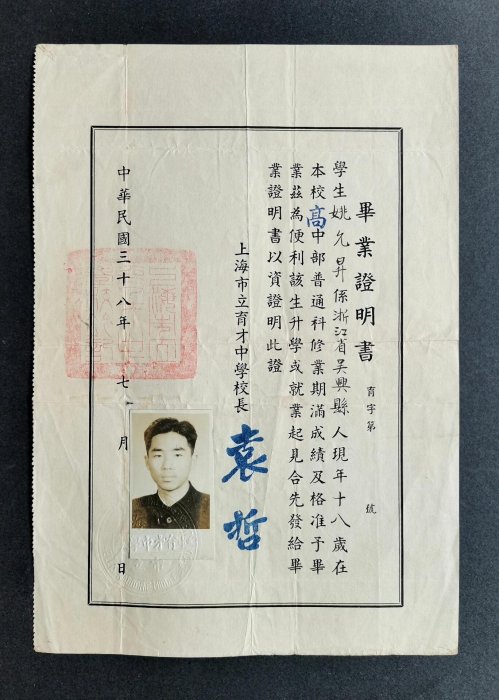 畢業證明書
育字第　號
學生姚允昇係浙江省吴興縣人現年十八歲在
本校高中部普通科修業期滿成績及格准予畢
業茲為便利該生升學或就業起見合先發給畢
業證明書以資證明此證
上海市立育才中學校長
袁哲
中華民國三十八年　七　月　日